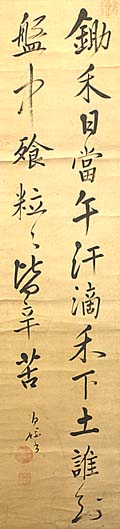 鋤禾日當午汗滴禾下土誰知
盤中飱粒〻皆辛苦